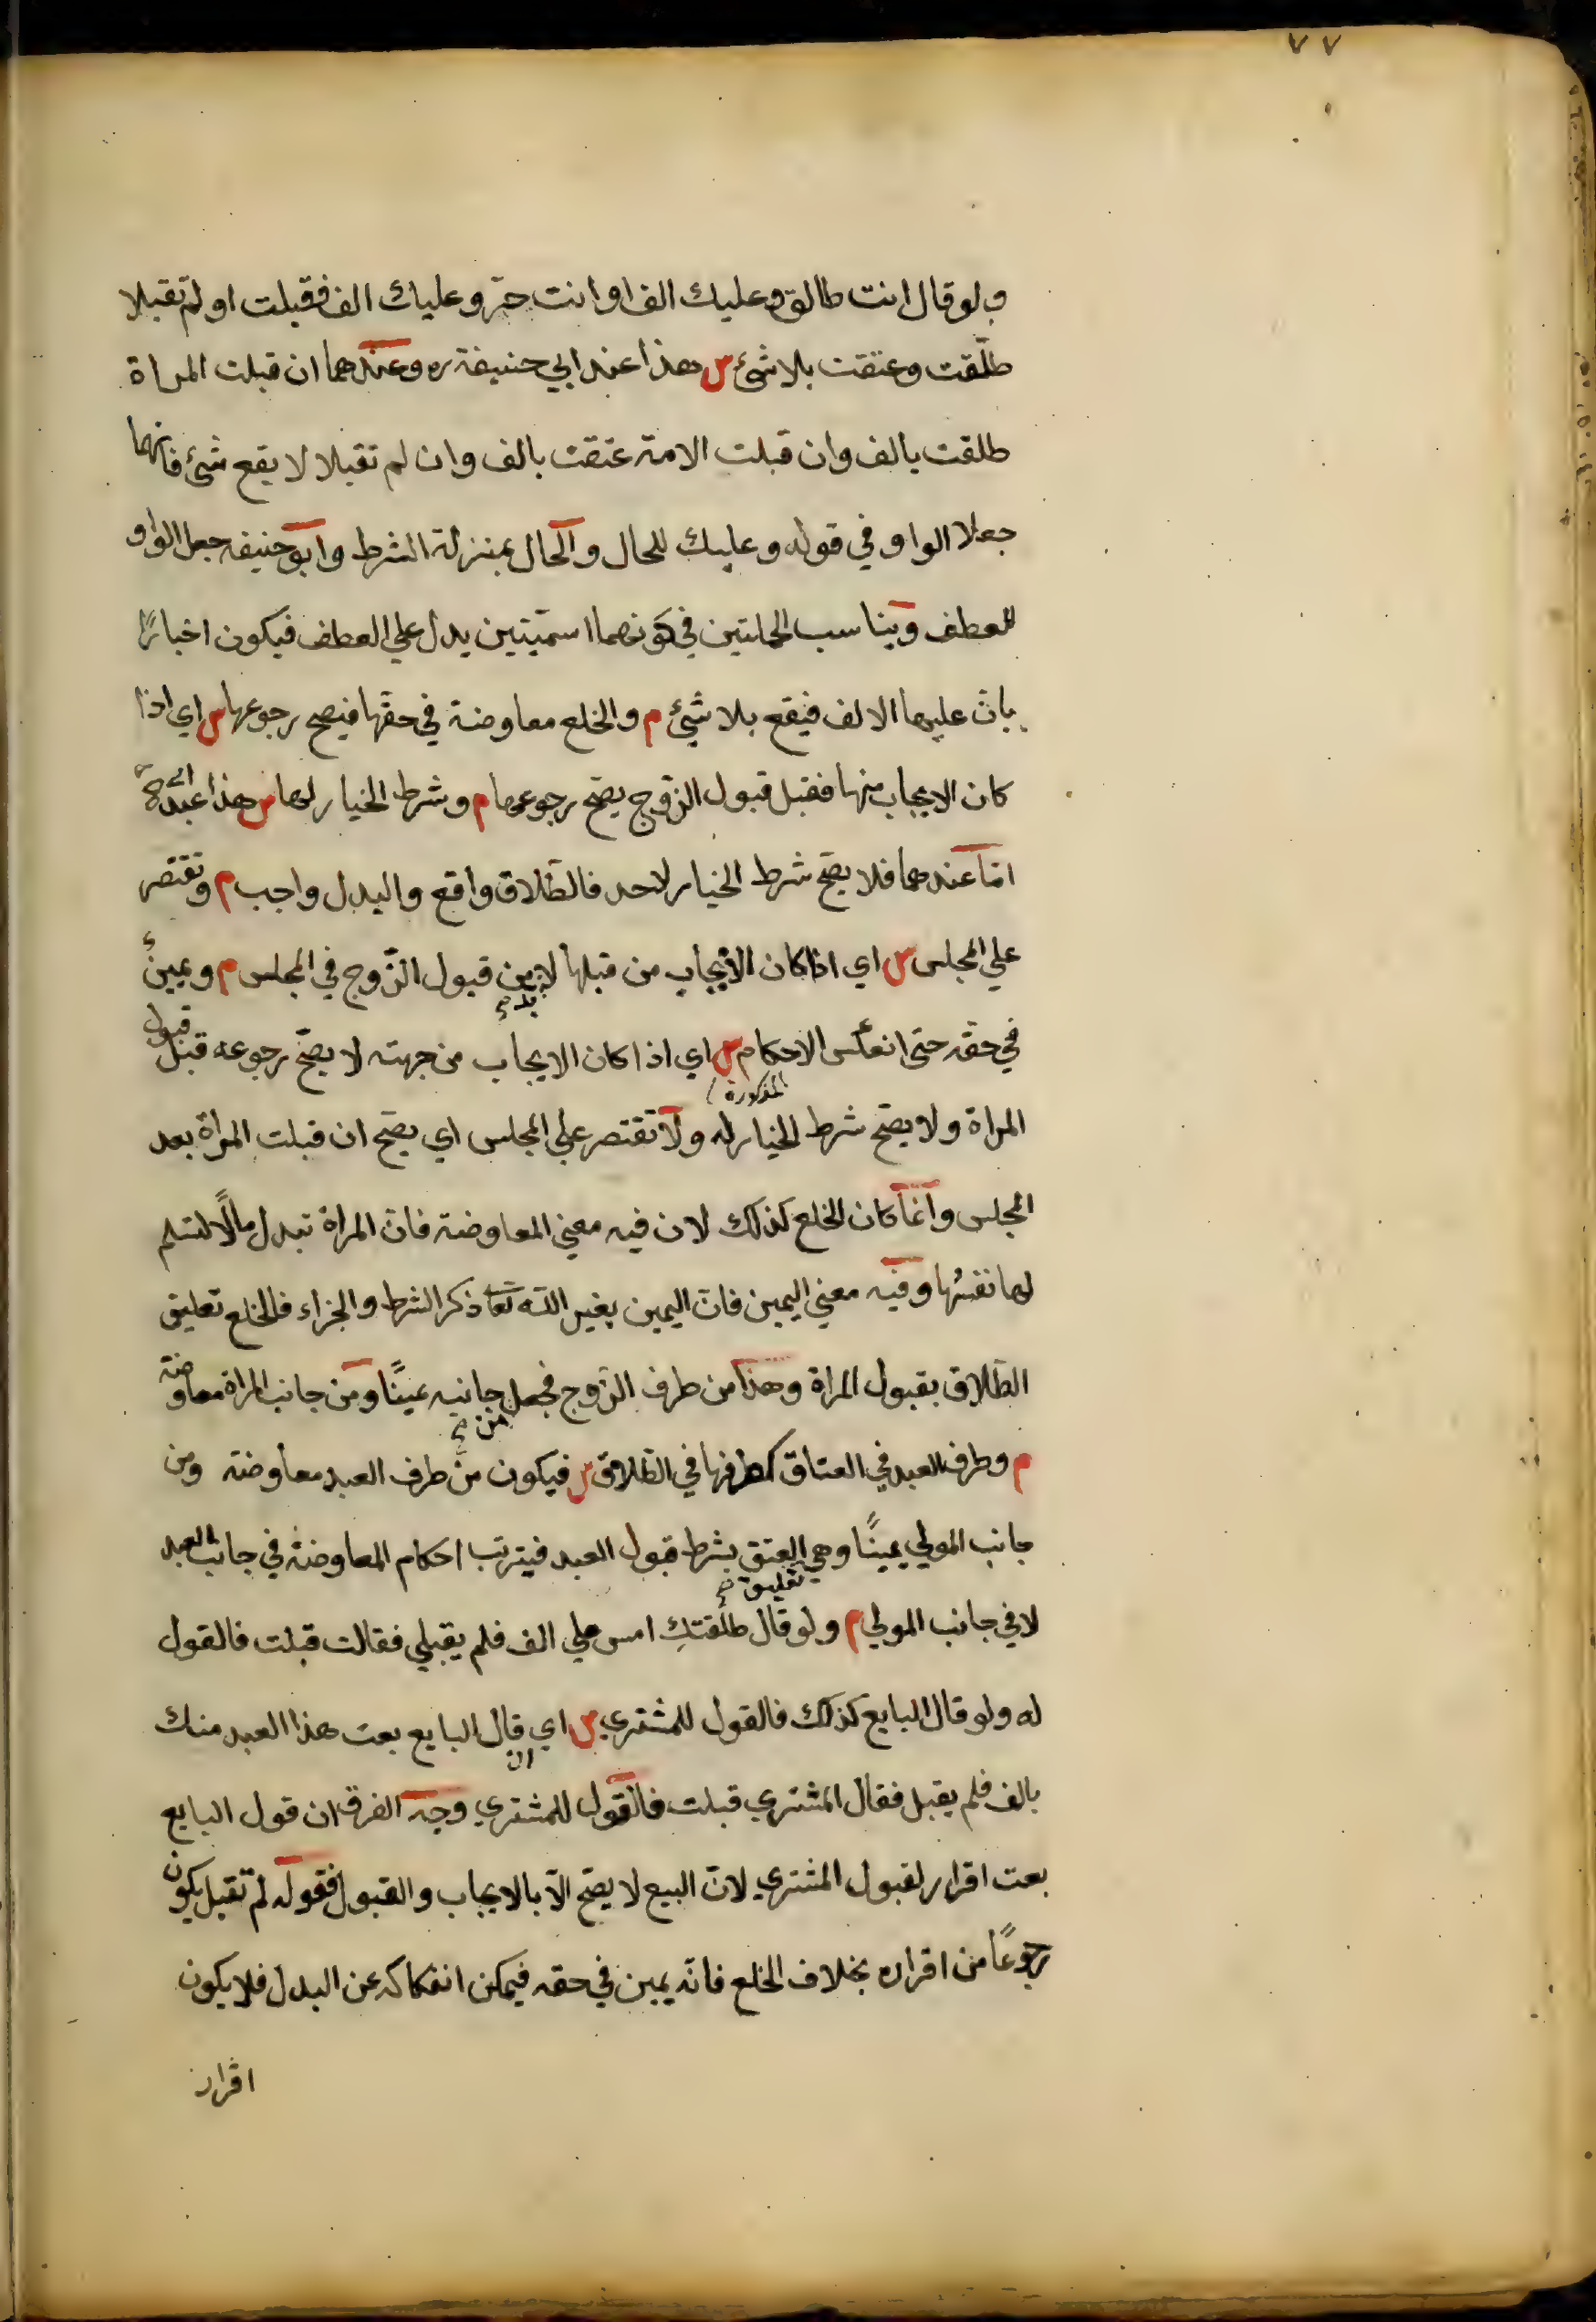 ٧٧
ولو قال انت طالق وعليك الف او انت حرّ وعليك الف فقبلت او لم تقبلا
طلّقت وعتقت بلا شئ س هذا عند ابي حنيفة ره وعندهما ان قبلت المراة
طلقت بالف وان قبلت الامة عتقت بالف وان لم تقبلا لا يقع شئ فانهما
جعلا الواو في قوله وعليك للحال والحال بمنزلة الشرط وابو حنيفه جعل الواو
للعطف ويناسب الجملتين في كونهما اسميّتين يدل علي العطف فيكون اخبارًا
بانّ عليها الالف فيقع بلا شئ م والخلع معاوضة في حقّها فيصح رجوعها س اي اذا
كان الايجاب منها فقبل قبول الزّوج يصّح رجوعها م وشرط الخيار لها س هذا عند ابي ح
امّا عندهما فلا يصّح شرط الخيار لاحد فالطّلاق واقع والبدل واجب م وتقتصر
علي المجلس س اي اذا كان الايجاب من قبلها لا بد من قبول الزّوج في المجلس م ويمينٌ
في حقّه حتي انعكس الاحكام المذكورة س اي اذا كان الايجاب من جهته لا يصّح رجوعه قبل قبول
المراة ولا يصّح شرط الخيار له ولا تقتصر علي المجلس اي يصّح ان قبلت المراة بعد
المجلس وانّما كان الخلع كذلك لان فيه معني المعاوضة فانّ المراة تبدل مالًا لتسلم
لها نفسُها وفيه معني اليمين فانّ اليمين بغير اللّه تعا ذكر الشرط والجزاء فالخلع تعليق
الطّلاق بقبول المراة وهذا من طرف الزّوج فجعل من جانبه يمينًا ومن جانب المراة معاوضة
م وطرف العبد في العتاق كطرفها في الطّلاق س فيكون من طرف العبد معاوضة ومن
جانب المولي يمينًا وهي تعليق العتق بشرط قبول العبد فيترتب احكام المعاوضة في جانب العبد
لا في جانب المولي م ولو قال طلّقتكِ امس علي الف فلم يقبلي فقالت قبلت فالقول
له ولو قال البايع كذلك فالقول للمشتري س اي ان قال البايع بعت هذا العبد منك
بالف فلم يقبل فقال المشتري قبلت فالقول للمشتري وجه الفرق ان قول البايع
بعت اقرار لقبول المشتري لانّ البيع لا يصّح الّا بالايجاب والقبول فقوله لم تقبل يكون
رجوعًا من اقراره بخلاف الخلع فانّه يمين في حقه فيمكن انفكاكه عن البدل فلا يكون
اقرار